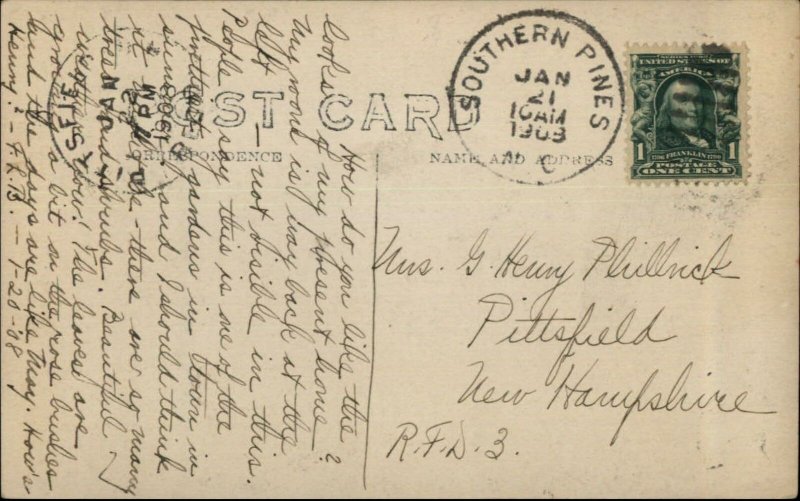 POST CARD
CORRESPONDENCE
NAME AND ADDRESS
SOUTHERN PINES
JAN
21
10 AM
1908
N. C.
SERIES 1902
UNITED STATES OF
AMERICA
1 1
1706 FRANKLIN 1790
POSTAGE
ONE CENT
Mrs. G. Henry Phillrick
Pittsfield
New Hampshire
R.F.D. 3.
How do you like the
looks of my present home?
My room is way back at the
left - not visible in this.
People say this is one of the
prettiest gardens in town in
summer and I should think
it might be - there are so many
trees and shrubs. Beautiful
weather now! The leaves are
growing a bit on the rose bushes
and the days are like May. How's
Henry? - F. L. B. - 1-20-'08
JAN
22
PM
1908